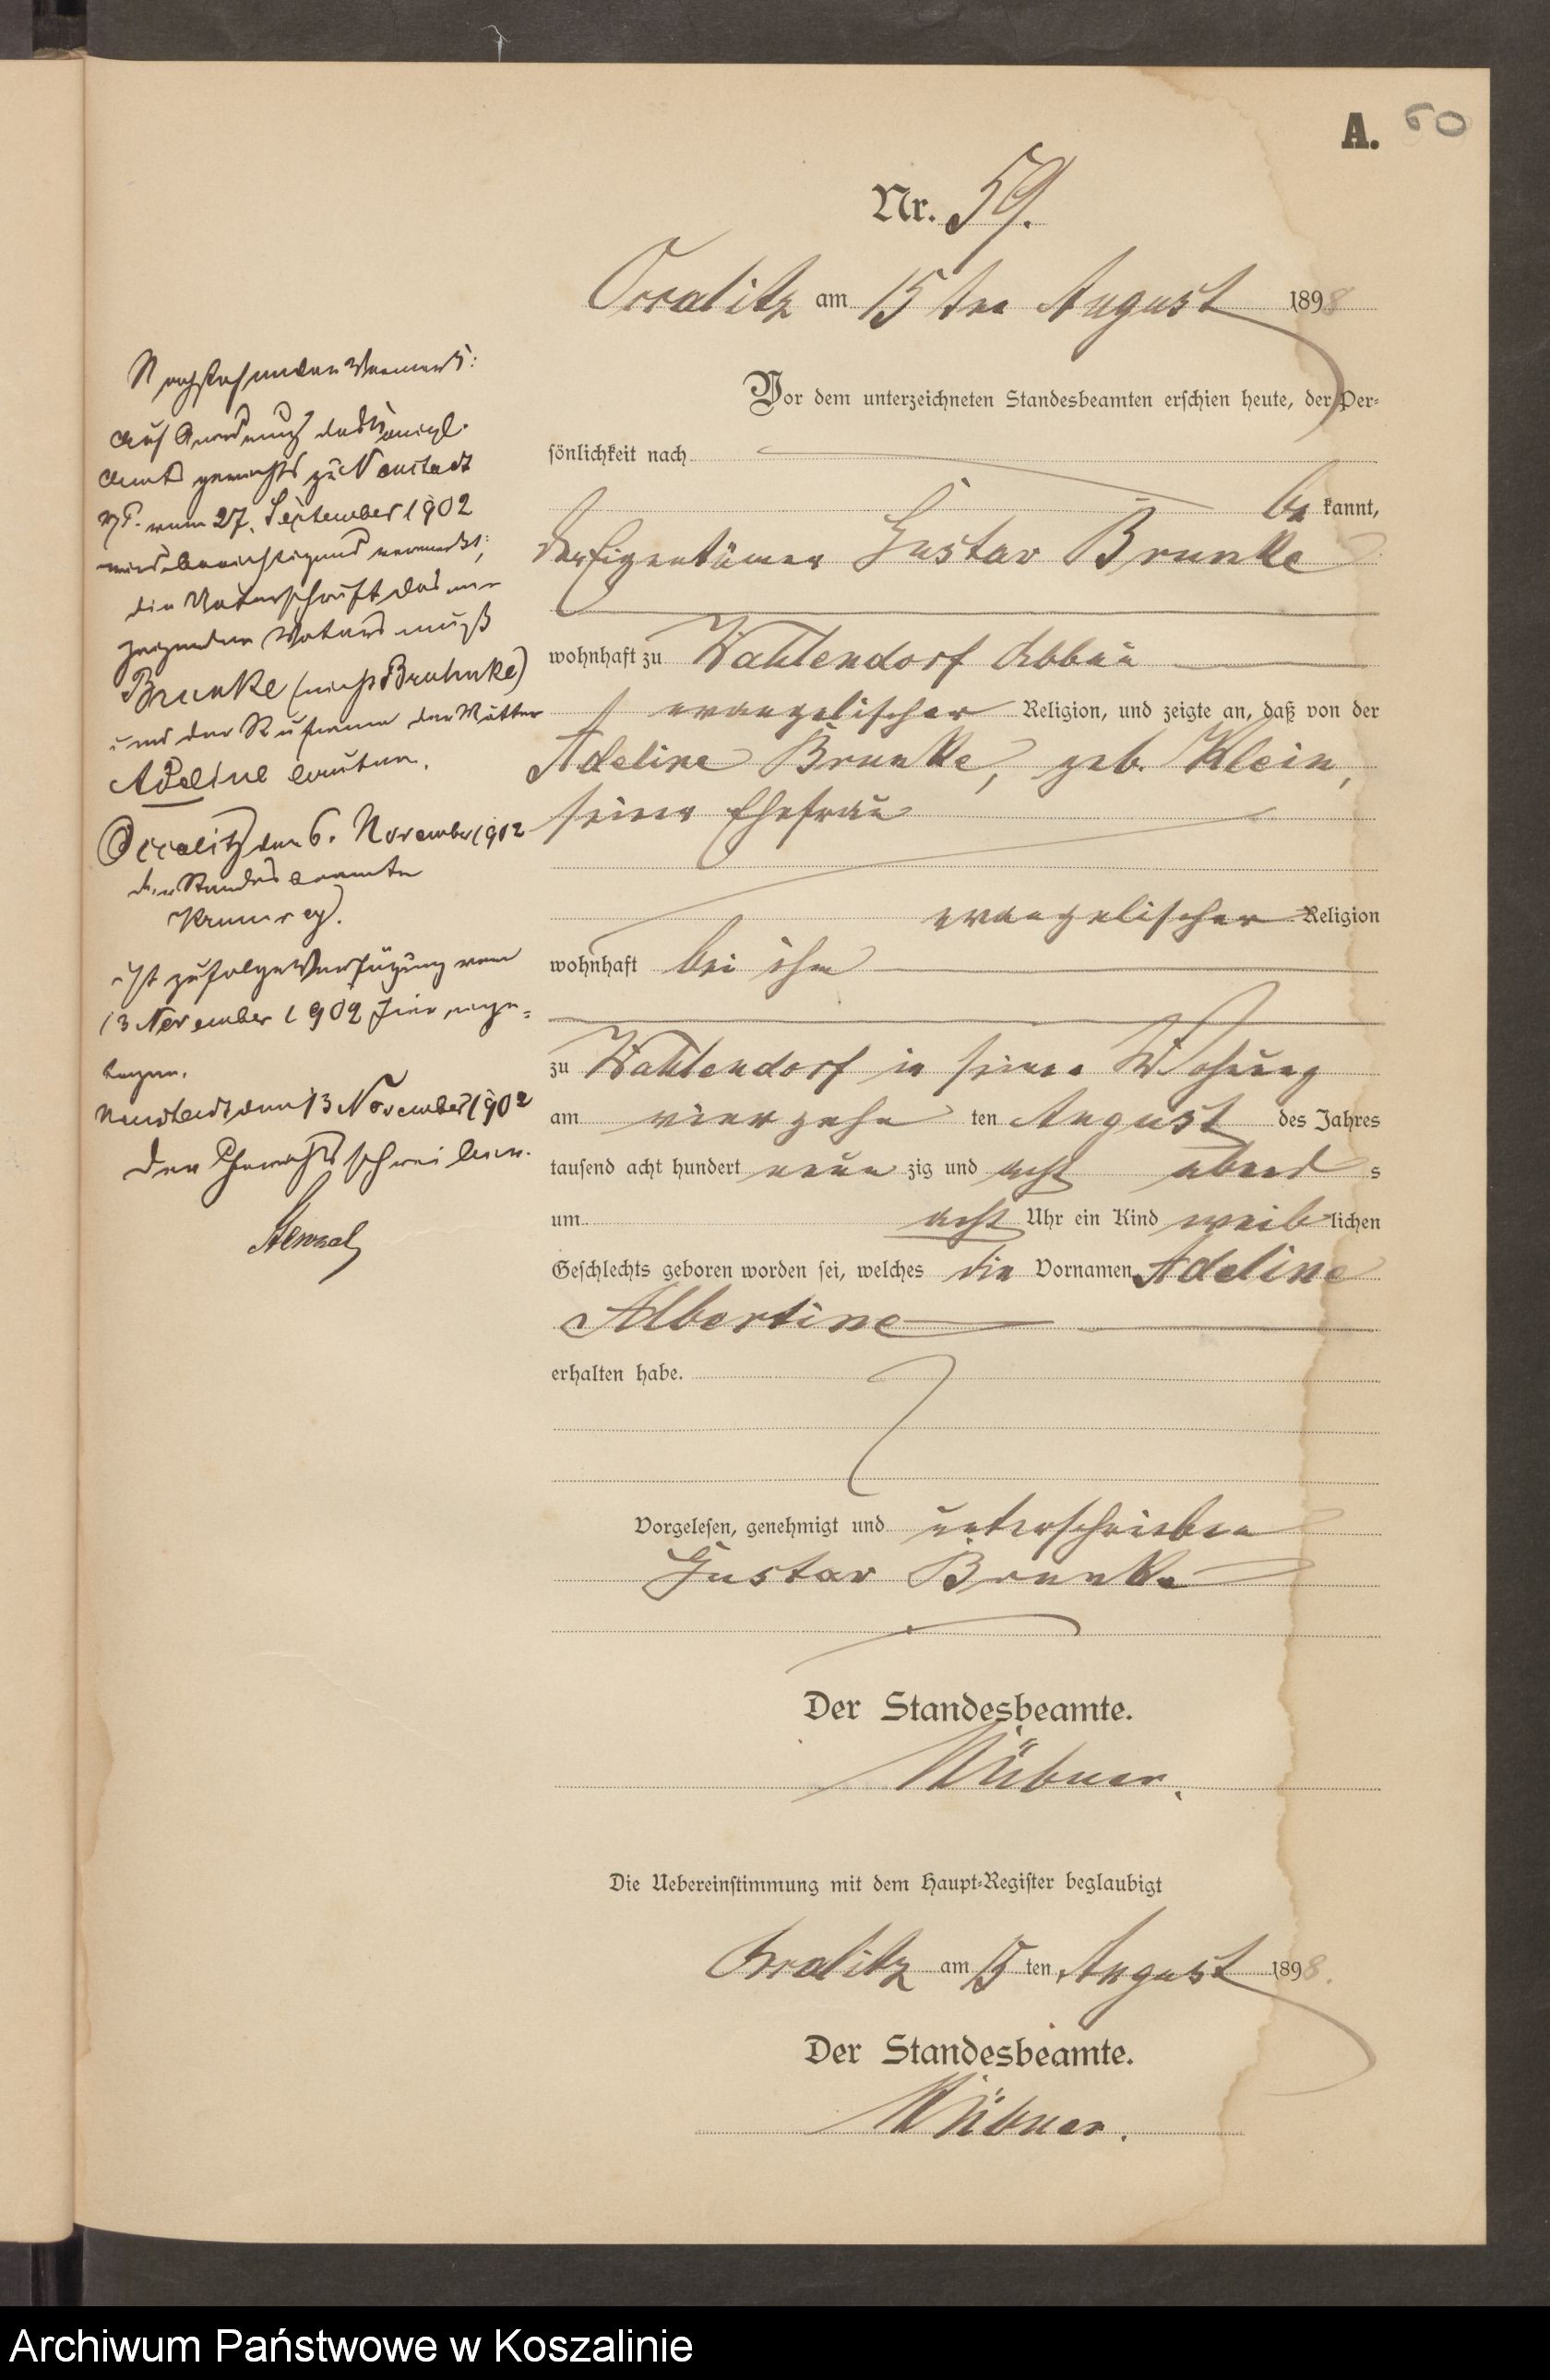 A. 60
Nr. 59.
Occalitz am 15 ten August 1898
Vor dem unterzeichneten Standesbeamten erschien heute, der Per-
sönlichkeit nach
be kannt,
der Eigentümer Gustav Brunke
wohnhaft zu Wahlendorf Abbau
evangelischer Religion, und zeigte an, daß von der
Adeline Brunke, geb. Klein,
seiner Ehefrau
evangelischer Religion
wohnhaft bei ihm
zu Wahlendorf in seiner Wohnung
am vierzehn ten August des Jahres
tausend acht hundert neun zig und acht abend s
um acht Uhr ein Kind weib lichen
Geschlechts geboren worden sei, welches die Vornamen Adeline
Albertine
erhalten habe.
Vorgelesen, genehmigt und unterschrieben
Gustav Brunke
Der Standesbeamte.
Die Uebereinstimmung mit dem Haupt-Register beglaubigt
Occalitz am 15 ten August 1898.
Der Standesbeamte.
Nachstehender Vermerk:
Auf Anordnung des Königl.
Amtsgerichts zu Neustadt
vom 27. September 1902
wird berichtigend vermerkt:
die Unterschrift des an-
zeigenden Vaters muß
Brunke (nicht Bruhnke)
und der Rufname der Mutter
Adeline lauten.
Occalitz den 6. November 1902
der Standesbeamte
ist zufolge Verfügung vom
13 November 1902 hier einge-
tragen.
Neustadt den 13 November 1902
Der Gerichtsschreiber.
Archiwum Państwowe w Koszalinie